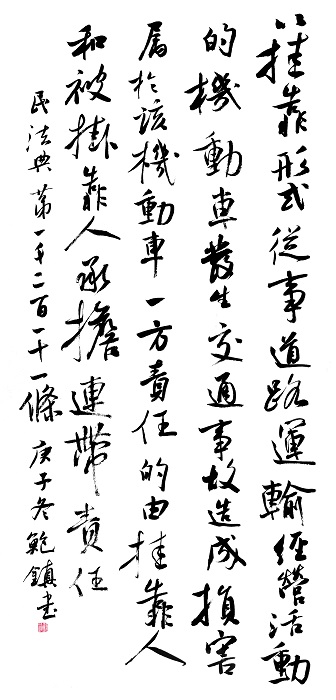 以挂靠形式從事道路運輸經營活動
的機動車發生交通事故造成損害
屬於該機動車一方責任的由挂靠人
和被掛靠人承擔連帶責任
民法典第一千二百一十一條 庚子冬鮑鎮書